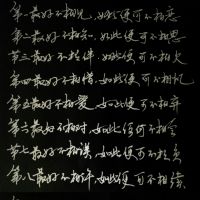 第一最好不相见,如此便可不相恋
第二最好不相知,如此便可不相思
第三最好不相伴,如此便可不相欠
第四最好不相惜,如此便可不相忆
第五最好不相爱,如此便可不相弃
第六最好不相对,如此便可不相会
第七最好不相误,如此便可不相负
第八最好不相许,如此便可不相续